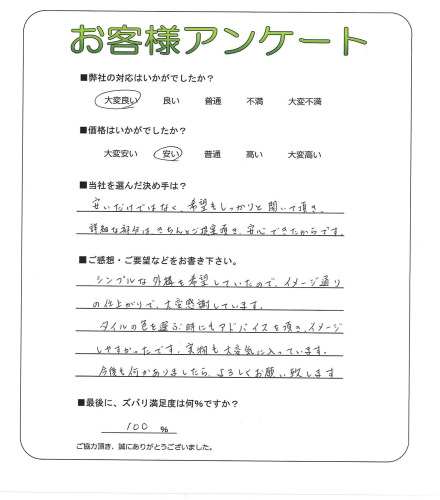 お客様アンケート
■弊社の対応はいかがでしたか？
大変良い 良い 普通 不満 大変不満
■価格はいかがでしたか？
大変安い 安い 普通 高い 大変高い
■当社を選んだ決め手は？
安いだけではなく、希望もしっかりと聞いて頂き、
詳細な部分は、きちんとご提案頂き、安心できたからです。
■ご感想・ご要望などをお書き下さい。
シンプルな外構を希望していたので、イメージ通り
の仕上がりで、大変感謝しています。
タイルの色を選ぶ時にもアドバイスを頂き、イメージ
しやすかったです。実物も大変気に入っています。
今後も何かありましたら、よろしくお願い致します
■最後に、ズバリ満足度は何％ですか？
100 ％
ご協力頂き、誠にありがとうございました。